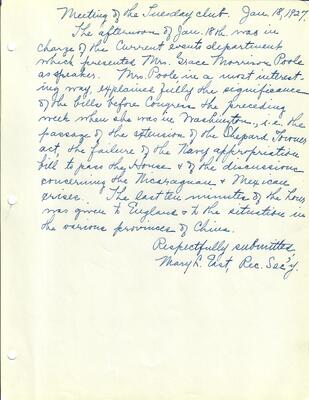 Meeting of the Tuesday club. Jan. 18, 1927.
The afternoon of Jan. 18th. was in
charge of the Current events department
which presented Mrs. Grace Morrison Poole
as speaker. Mrs Poole in a most interest-
ing way, explained fully the significance
of the bills before Congress the preceding
week when she was in Washington, i.e. the
passage of the extension of the Shepard Towner
act, the failure of the Navy appropriation
bill to pass the House & of the discussions
concerning the Nicaraguan & Mexican
crises. The last ten minutes of the hour
was given to England & to the situation in
the various provinces of China.
Respectfully submitted
Mary L. East, Rec. Sec'y.